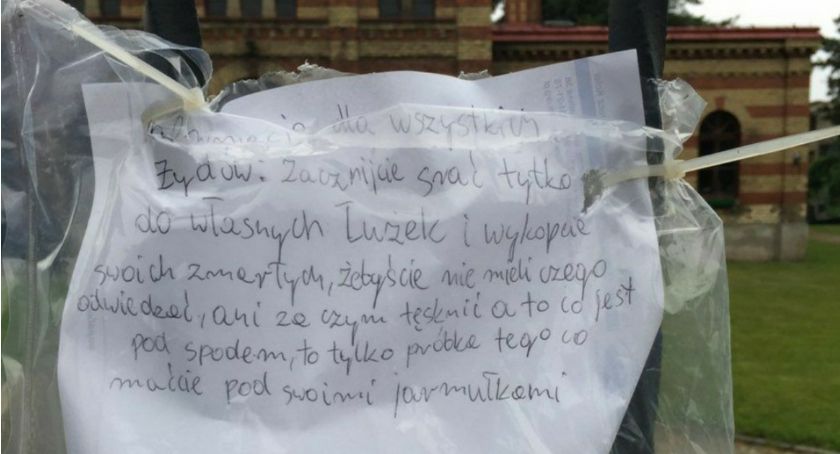 Informacja dla wszystkich
Żydów: Zacznijcie srać tylko
do własnych Łużek i wykopcie
swoich zmarłych, żebyście nie mieli czego
odwiedzać, ani za czym tęsknić a to co jest
pod spodem, to tylko próbka tego co
macie pod swoimi jarmułkami